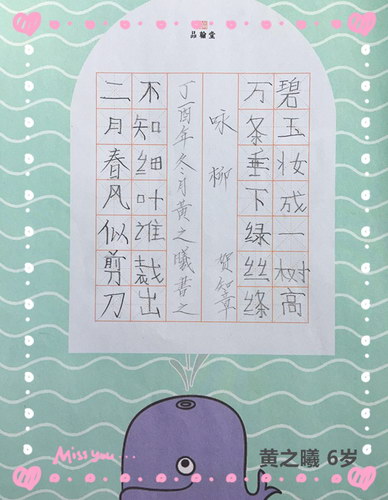 品翰堂
碧玉妆成一树高
万条垂下绿丝绦
咏柳 贺知章
丁酉年冬月黄之曦书之
不知细叶谁裁出
二月春风似剪刀
Miss you...
黄之曦 6岁